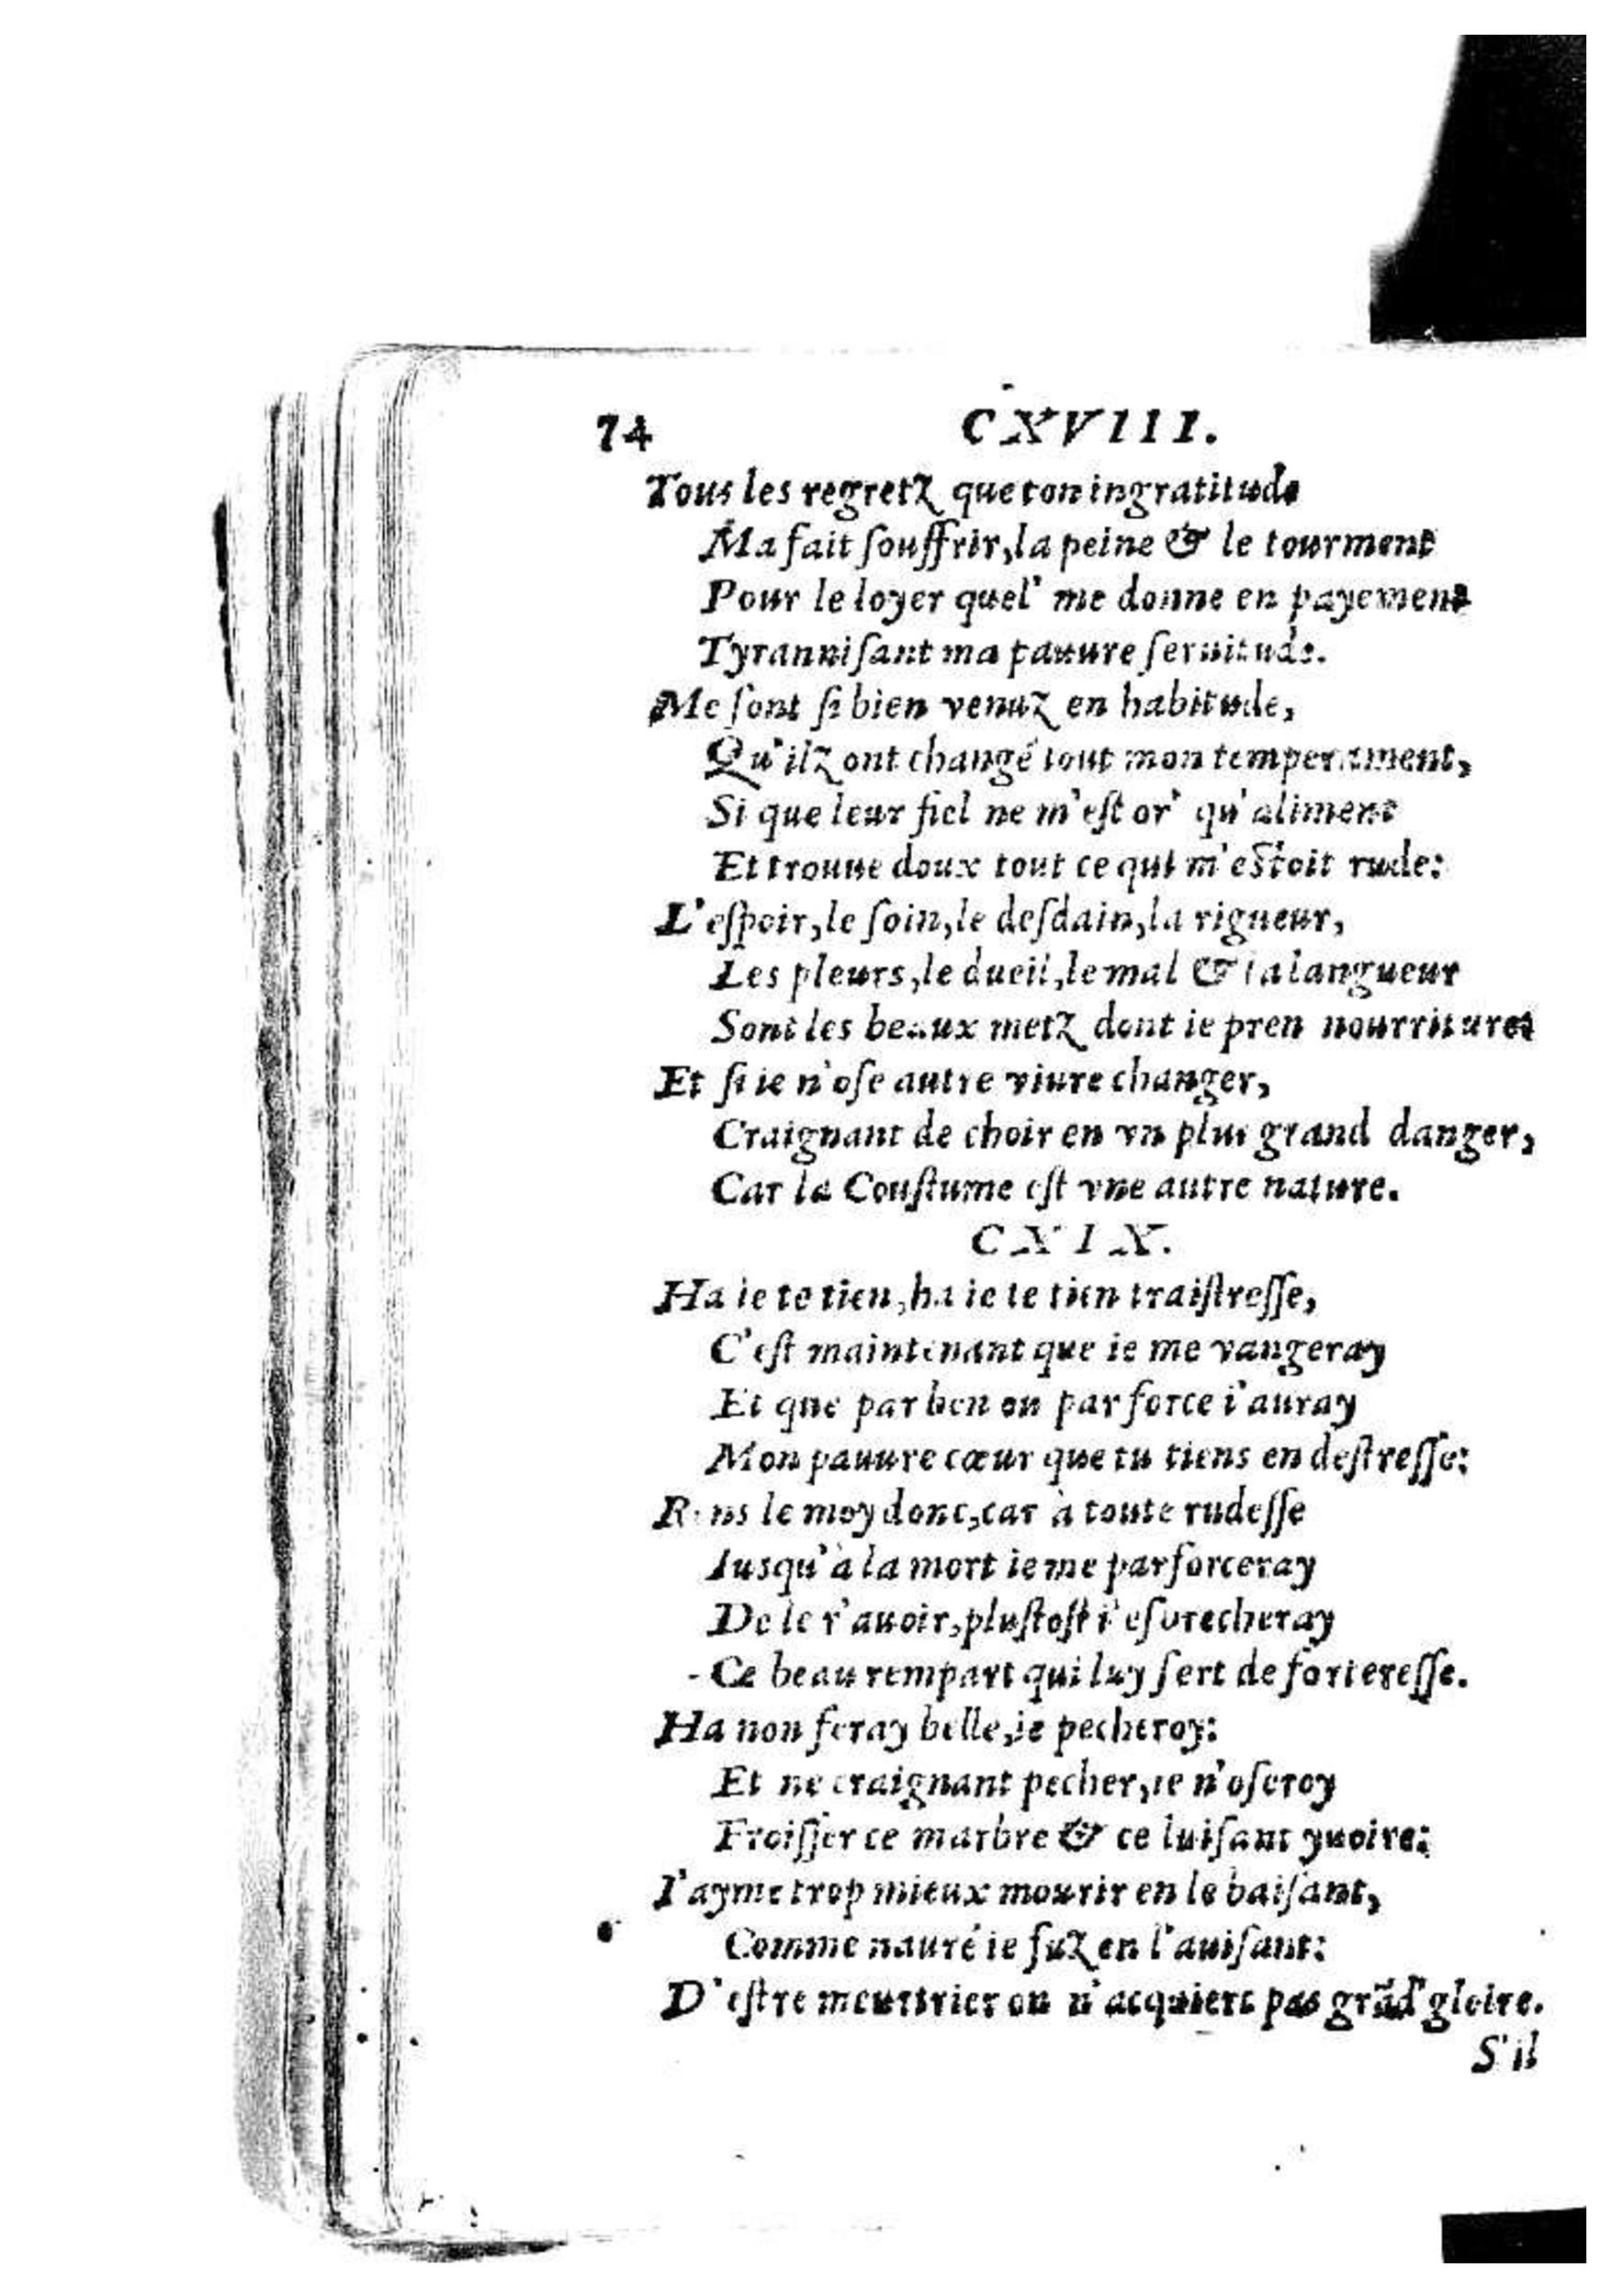 74 CXVIII.
Tous les regretz que ton ingratitude
Ma fait ſouffrir, la peine & le tourment
Pour le loyer quel' me donne en payement
Tyranniſant ma pauure ſeruitude.
Me ſont ſi bien venuz en habitude,
Qu'ilz ont changé tout mon temperament,
Si que leur fiel ne m'eſt or' qu'aliment
Et trouue doux tout ce qui m'eſtoit rude:
L'eſpoir, le ſoin, le deſdain, la rigueur,
Les pleurs, le dueil, le mal & la langueur
Sont les beaux metz dont ie pren nourriture
Et ſi ie n'oſe autre viure changer,
Craignant de choir en vn plus grand danger,
Car la Couſtume eſt vne autre nature.
CXIX.
Ha ie te tien, ha ie te tien traiſtreſſe,
C'eſt maintenant que ie me vangeray
Et que par ben ou par force i'auray
Mon pauure cœur que tu tiens en deſtreſſe:
Rens le moy donc, car à toute rudeſſe
Iusqu'à la mort ie me parforceray
De le r'auoir, pluſtoſt i'
Ce beau rempart qui luy ſert de fortereſſe.
Ha non feray belle, ie pecheroy:
Et ne craignant pecher, ie n'oſeroy
Froiſſer ce marbre & ce luiſant yuoire:
I'ayme trop mieux mourir en le baiſant,
Comme nauré ie fuz en l'auiſant:
D'eſtre meurtrier on n'acquiert pas grãd' gloire.
S'il